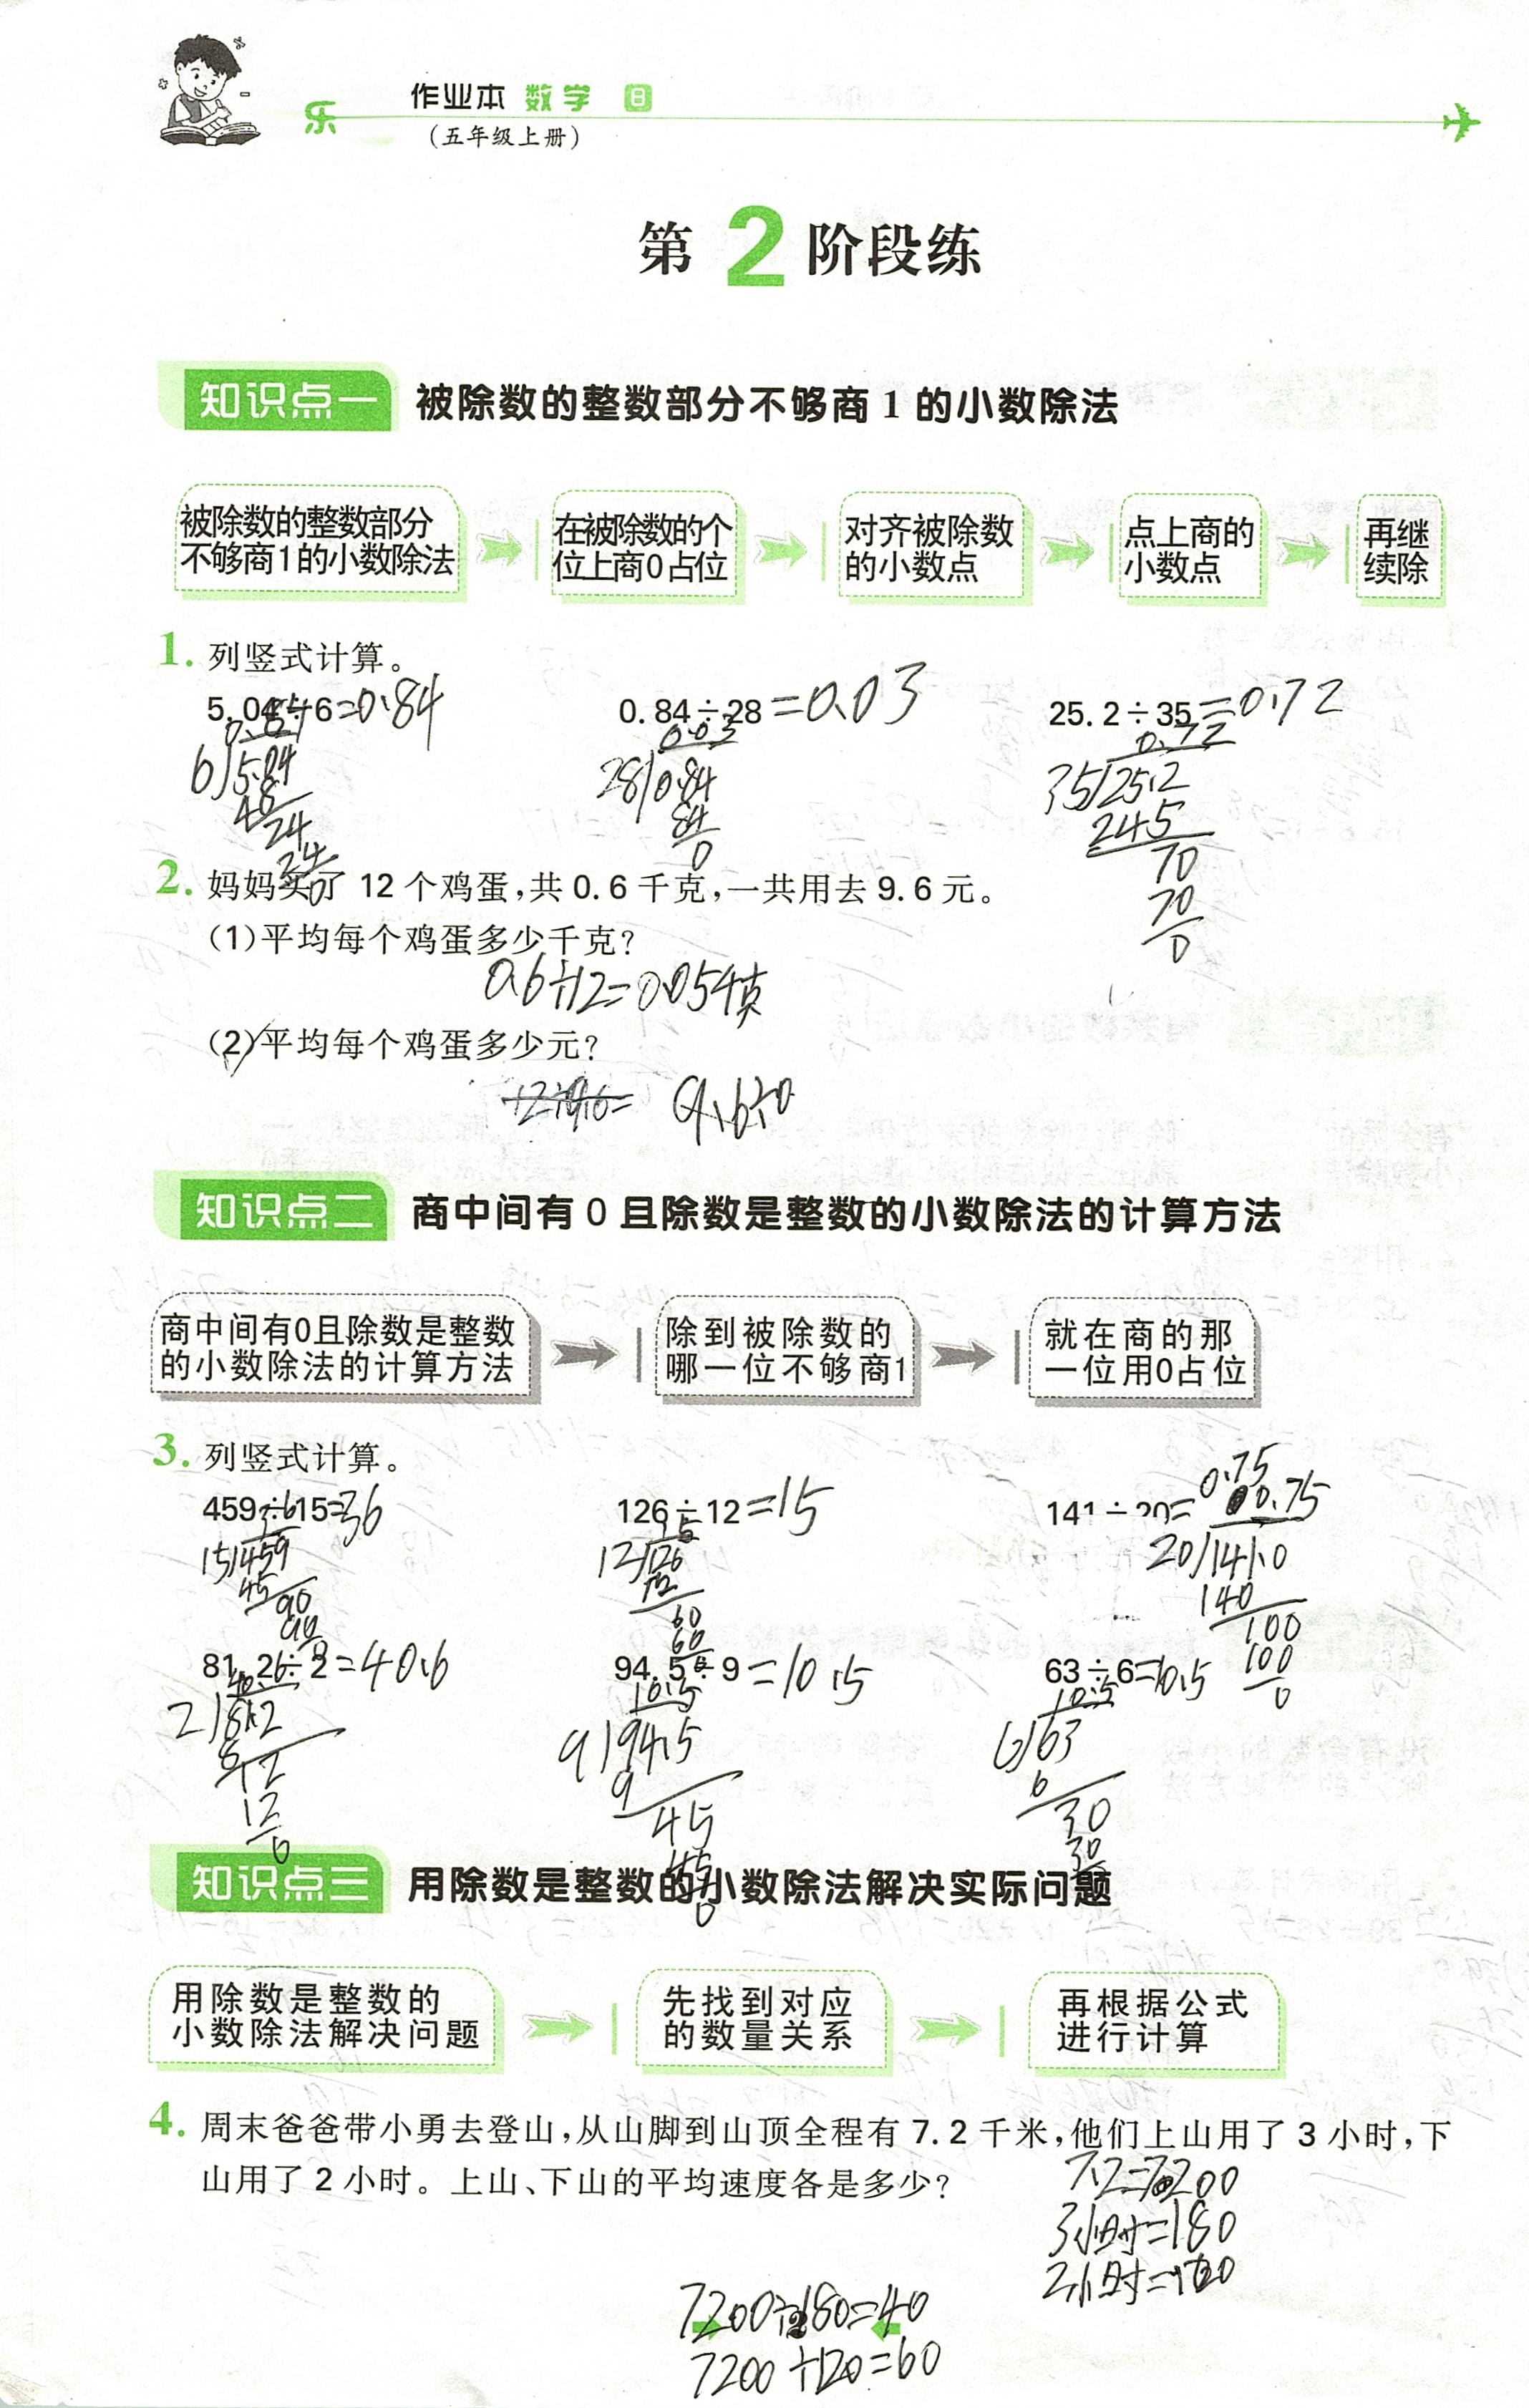 乐
作业本 数学 B
(五年级上册)
第2阶段练
知识点一 被除数的整数部分不够商1的小数除法
被除数的整数部分
不够商1的小数除法
在被除数的个
位上商0占位
对齐被除数
的小数点
点上商的
小数点
再继
续除
1. 列竖式计算。
5.04÷6=0.84
0.84÷28=0.03
25.2÷35=0.72
0.84
6)5.04
48
24
24
0
0.03
28)0.84
84
0
0.72
35)25.2
245
70
70
0
2. 妈妈买了12个鸡蛋,共0.6千克,一共用去9.6元。
(1)平均每个鸡蛋多少千克?
0.6÷12=0.05千克
(2)平均每个鸡蛋多少元?
9.6÷0
知识点二 商中间有0且除数是整数的小数除法的计算方法
商中间有0且除数是整数
的小数除法的计算方法
除到被除数的
哪一位不够商1
就在商的那
一位用0占位
3. 列竖式计算。
459÷15=36
126÷12=15
141÷20=0.75
0.75
36
15)459
45
90
90
0
15
12)126
12
60
60
20)141.0
140
100
100
0
81.2÷2=40.6
94.5÷9=10.5
63÷6=10.5
2)81.2
8
12
12
0
10.5
9)94.5
9
45
45
0
10.5
6)63
6
30
30
知识点三 用除数是整数的小数除法解决实际问题
用除数是整数的
小数除法解决问题
先找到对应
的数量关系
再根据公式
进行计算
4. 周末爸爸带小勇去登山,从山脚到山顶全程有7.2千米,他们上山用了3小时,下
山用了2小时。上山、下山的平均速度各是多少?
7.2=7200
3小时=180
2小时=120
7200÷180=40
7200÷120=60